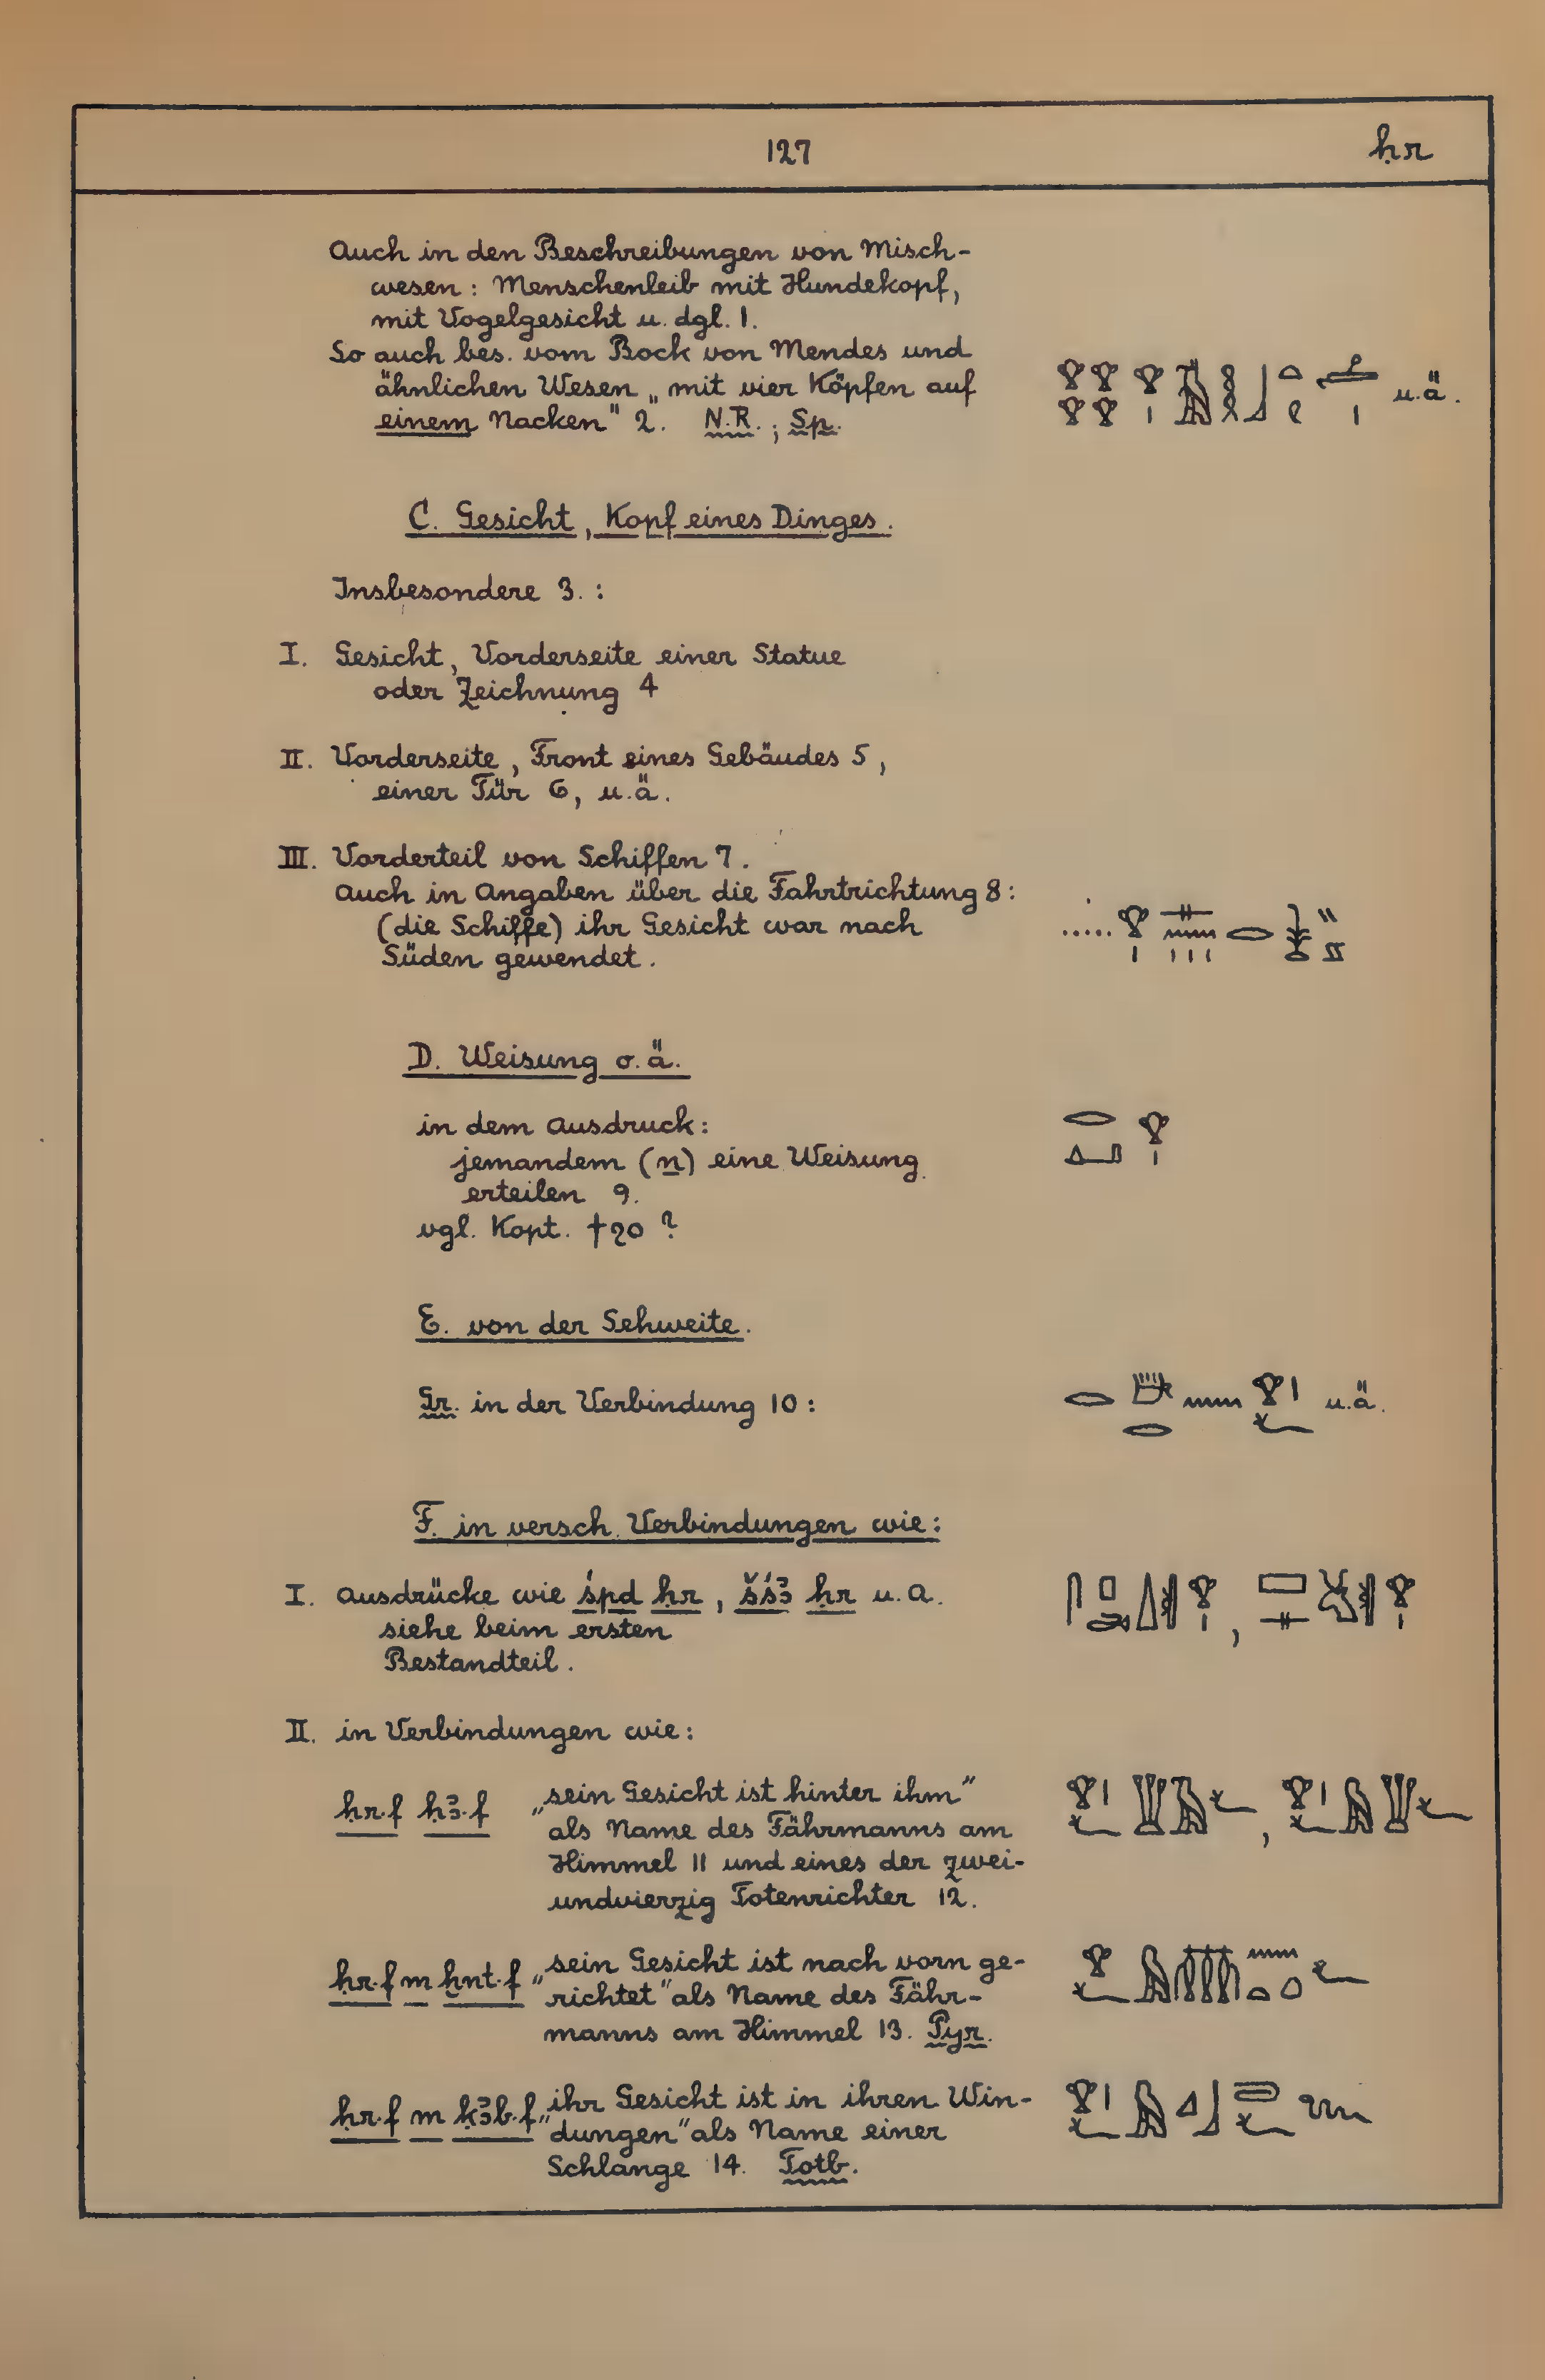 127
ḥr
Auch in den Beschreibungen von Misch-
wesen: Menschenleib mit Hundekopf,
mit Vogelgesicht u. dgl. 1.
So auch bes. vom Bock von Mendes und
ähnlichen Wesen „mit vier Köpfen auf
einem Nacken" 2. N.R.; Sp.
u.ä.
C. Gesicht, Kopf eines Dinges.
Insbesondere 3.:
I. Gesicht, Vorderseite einer Statue
oder Zeichnung 4
II. Vorderseite, Front eines Gebäudes 5,
einer Tür 6, u.ä.
III. Vorderteil von Schiffen 7.
Auch in Angaben über die Fahrtrichtung 8:
(die Schiffe) ihr Gesicht war nach
Süden gewendet.
D. Weisung o.ä.
in dem Ausdruck:
jemandem (n) eine Weisung
erteilen 9.
vgl. Kopt. ϯϩο ?
E. von der Sehweite.
Gr. in der Verbindung 10:
u.ä.
F. in versch. Verbindungen wie:
I. Ausdrücke wie śpd ḥr, šśꜣ ḥr u.a.
siehe beim ersten
Bestandteil.
II. in Verbindungen wie:
ḥr.f ḥꜣ.f „sein Gesicht ist hinter ihm"
als Name des Fährmanns am
Himmel 11 und eines der zwei-
undvierzig Totenrichter 12.
ḥr.f m ḫnt.f „sein Gesicht ist nach vorn ge-
richtet" als Name des Fähr-
manns am Himmel 13. Pyr.
ḥr.f m ḳꜣb.f „ihr Gesicht ist in ihren Win-
dungen" als Name einer
Schlange 14. Totb.